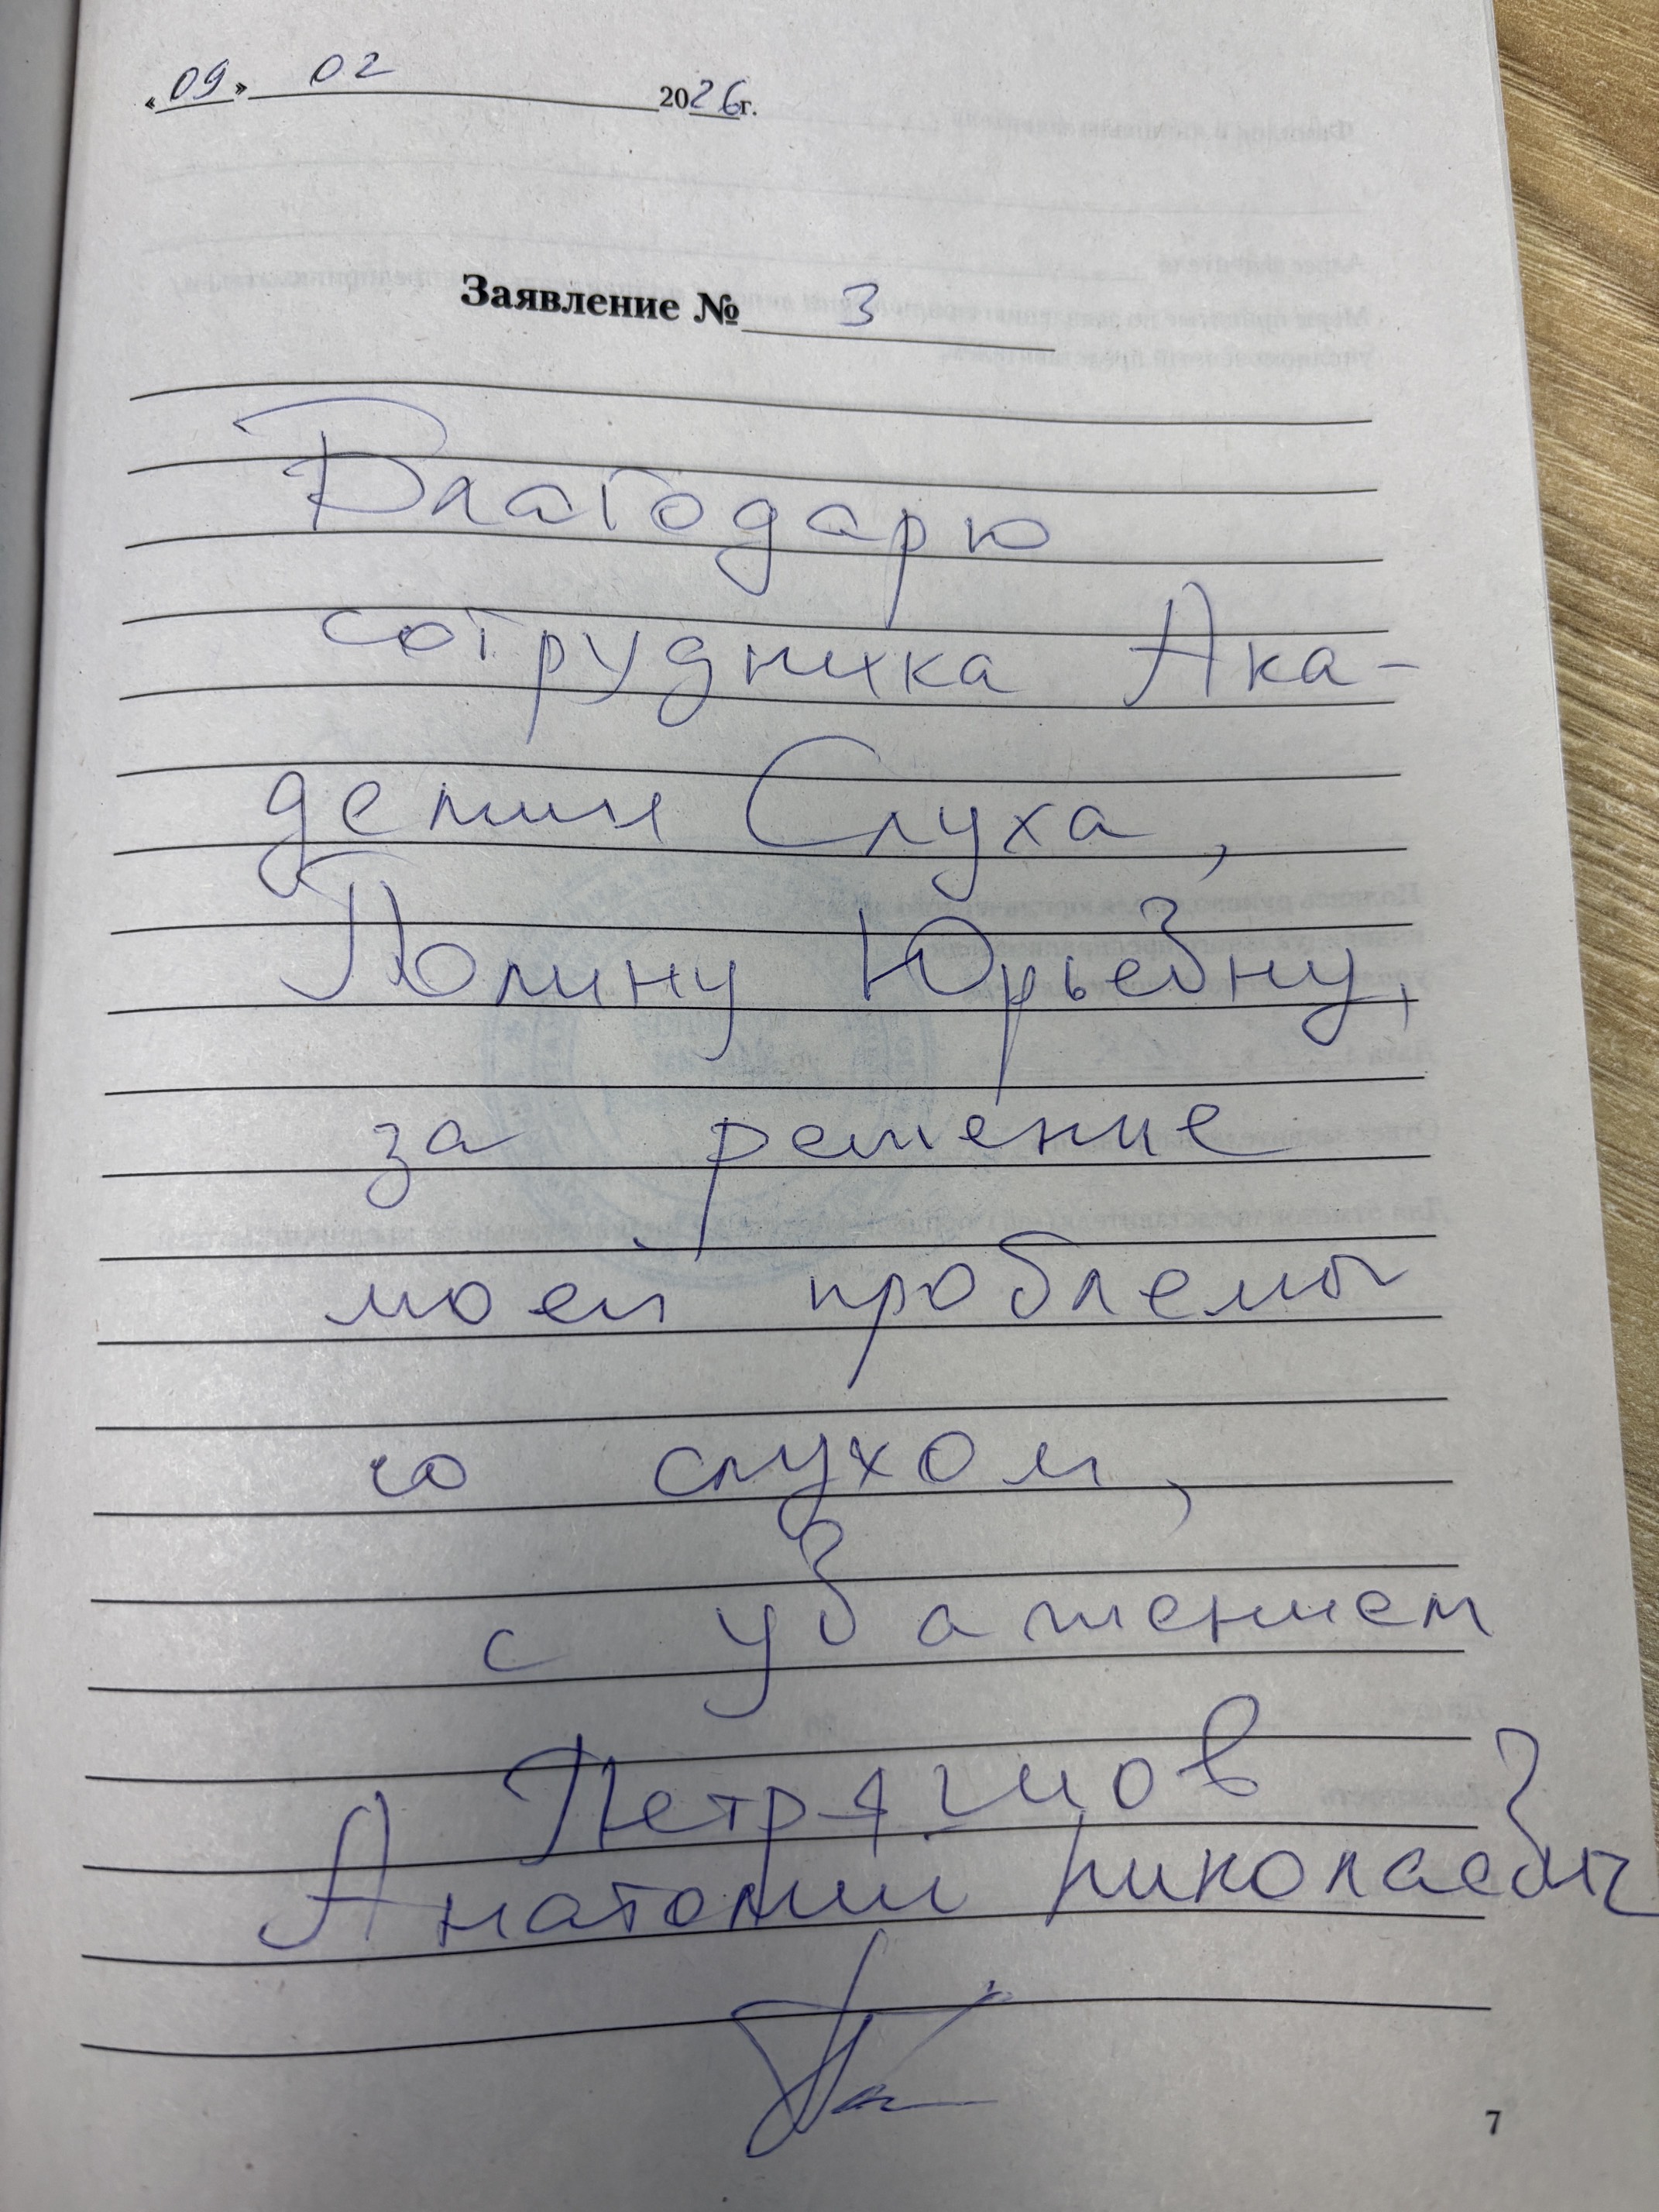 «09» 02 2026г.
Заявление № 3
Благодарю
сотрудника Ака-
демии Слуха,
Полину Юрьевну,
за решение
моей проблемы
со слухом,
с уважением
Анатолий Николаевич
7